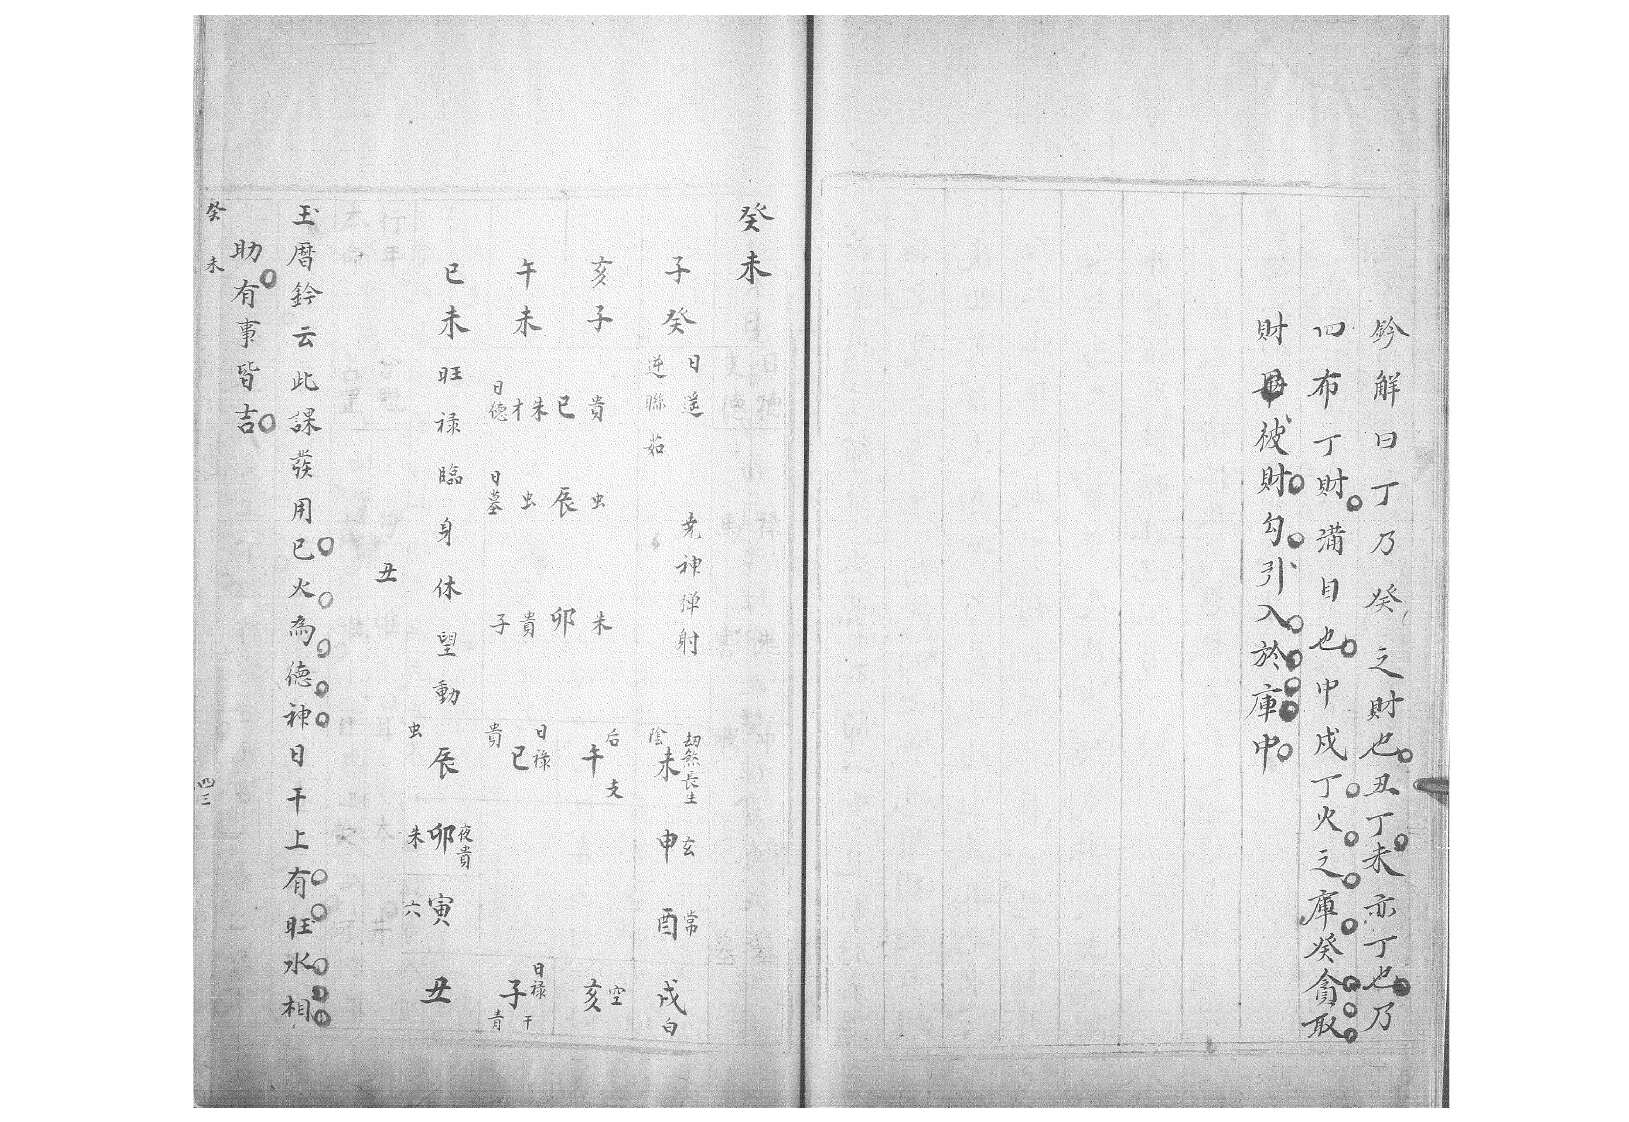 鈐解曰丁乃癸之財也丑丁未亦丁也乃
四布丁財滿目也中戌丁火之庫癸貪取
財被財勾引入於庫中
癸未
子癸
日遥
逆聯茹
神弹射
亥子
貴虫未
巳辰卯
午未
朱虫貴
日德
日墓
子
巳未旺禄臨身休望動
劫煞長生
陰未
申玄
酉常
戌白
后午支
亥空
日禄
貴巳
日禄
子干
青
虫辰
夜貴
朱卯
六寅
丑
丑
玉曆鈐云此課發用巳火為德神日干上有旺水相
助有事皆吉
癸未
四三